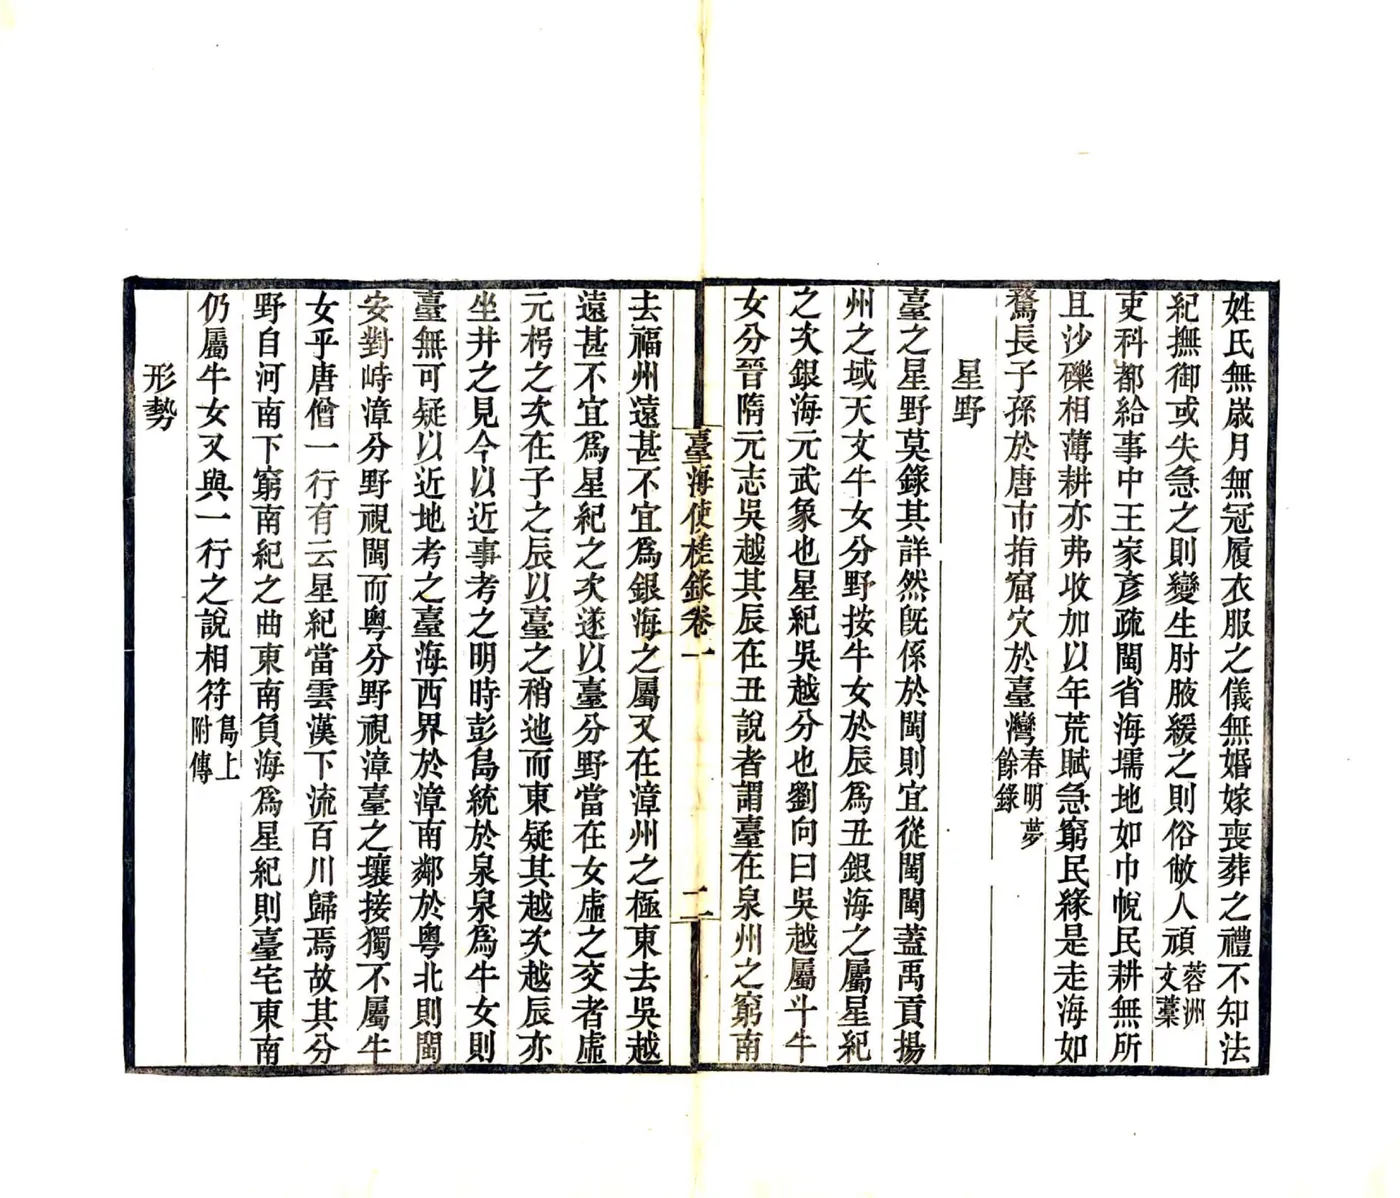 姓氏無歲月無冠履衣服之儀無婚嫁喪葬之禮不知法
紀撫御或失急之則變生肘腋緩之則俗敝人頑蓉洲文藁
吏科都給事中王家彥疏閩省海壖地如巾帨民耕無所
且沙礫相薄耕亦弗收加以年荒賦急窮民緣是走海如
鶩長子孫於唐市指窟穴於臺灣春明夢餘錄
星野
臺之星野莫錄其詳然旣係於閩則宜從閩閩蓋禹貢揚
州之域天文牛女分野按牛女於辰爲丑銀海之屬星紀
之次銀海元武象也星紀吳越分也劉向曰吳越屬斗牛
女分晉隋元志吳越其辰在丑說者謂臺在泉州之窮南
臺海使槎錄卷一
二
去福州遠甚不宜爲銀海之屬又在漳州之極東去吳越
遠甚不宜爲星紀之次遂以臺分野當在女虛之交者虛
元枵之次在子之辰以臺之稍迆而東疑其越次越辰亦
坐井之見今以近事考之明時彭島統於泉泉爲牛女則
臺無可疑以近地考之臺海西界於漳南鄰於粵北則閩
安對峙漳分野視閩而粵分野視漳臺之壤接獨不屬牛
女乎唐僧一行有云星紀當雲漢下流百川歸焉故其分
野自河南下窮南紀之曲東南負海爲星紀則臺宅東南
仍屬牛女又與一行之說相符島上附傳
形勢